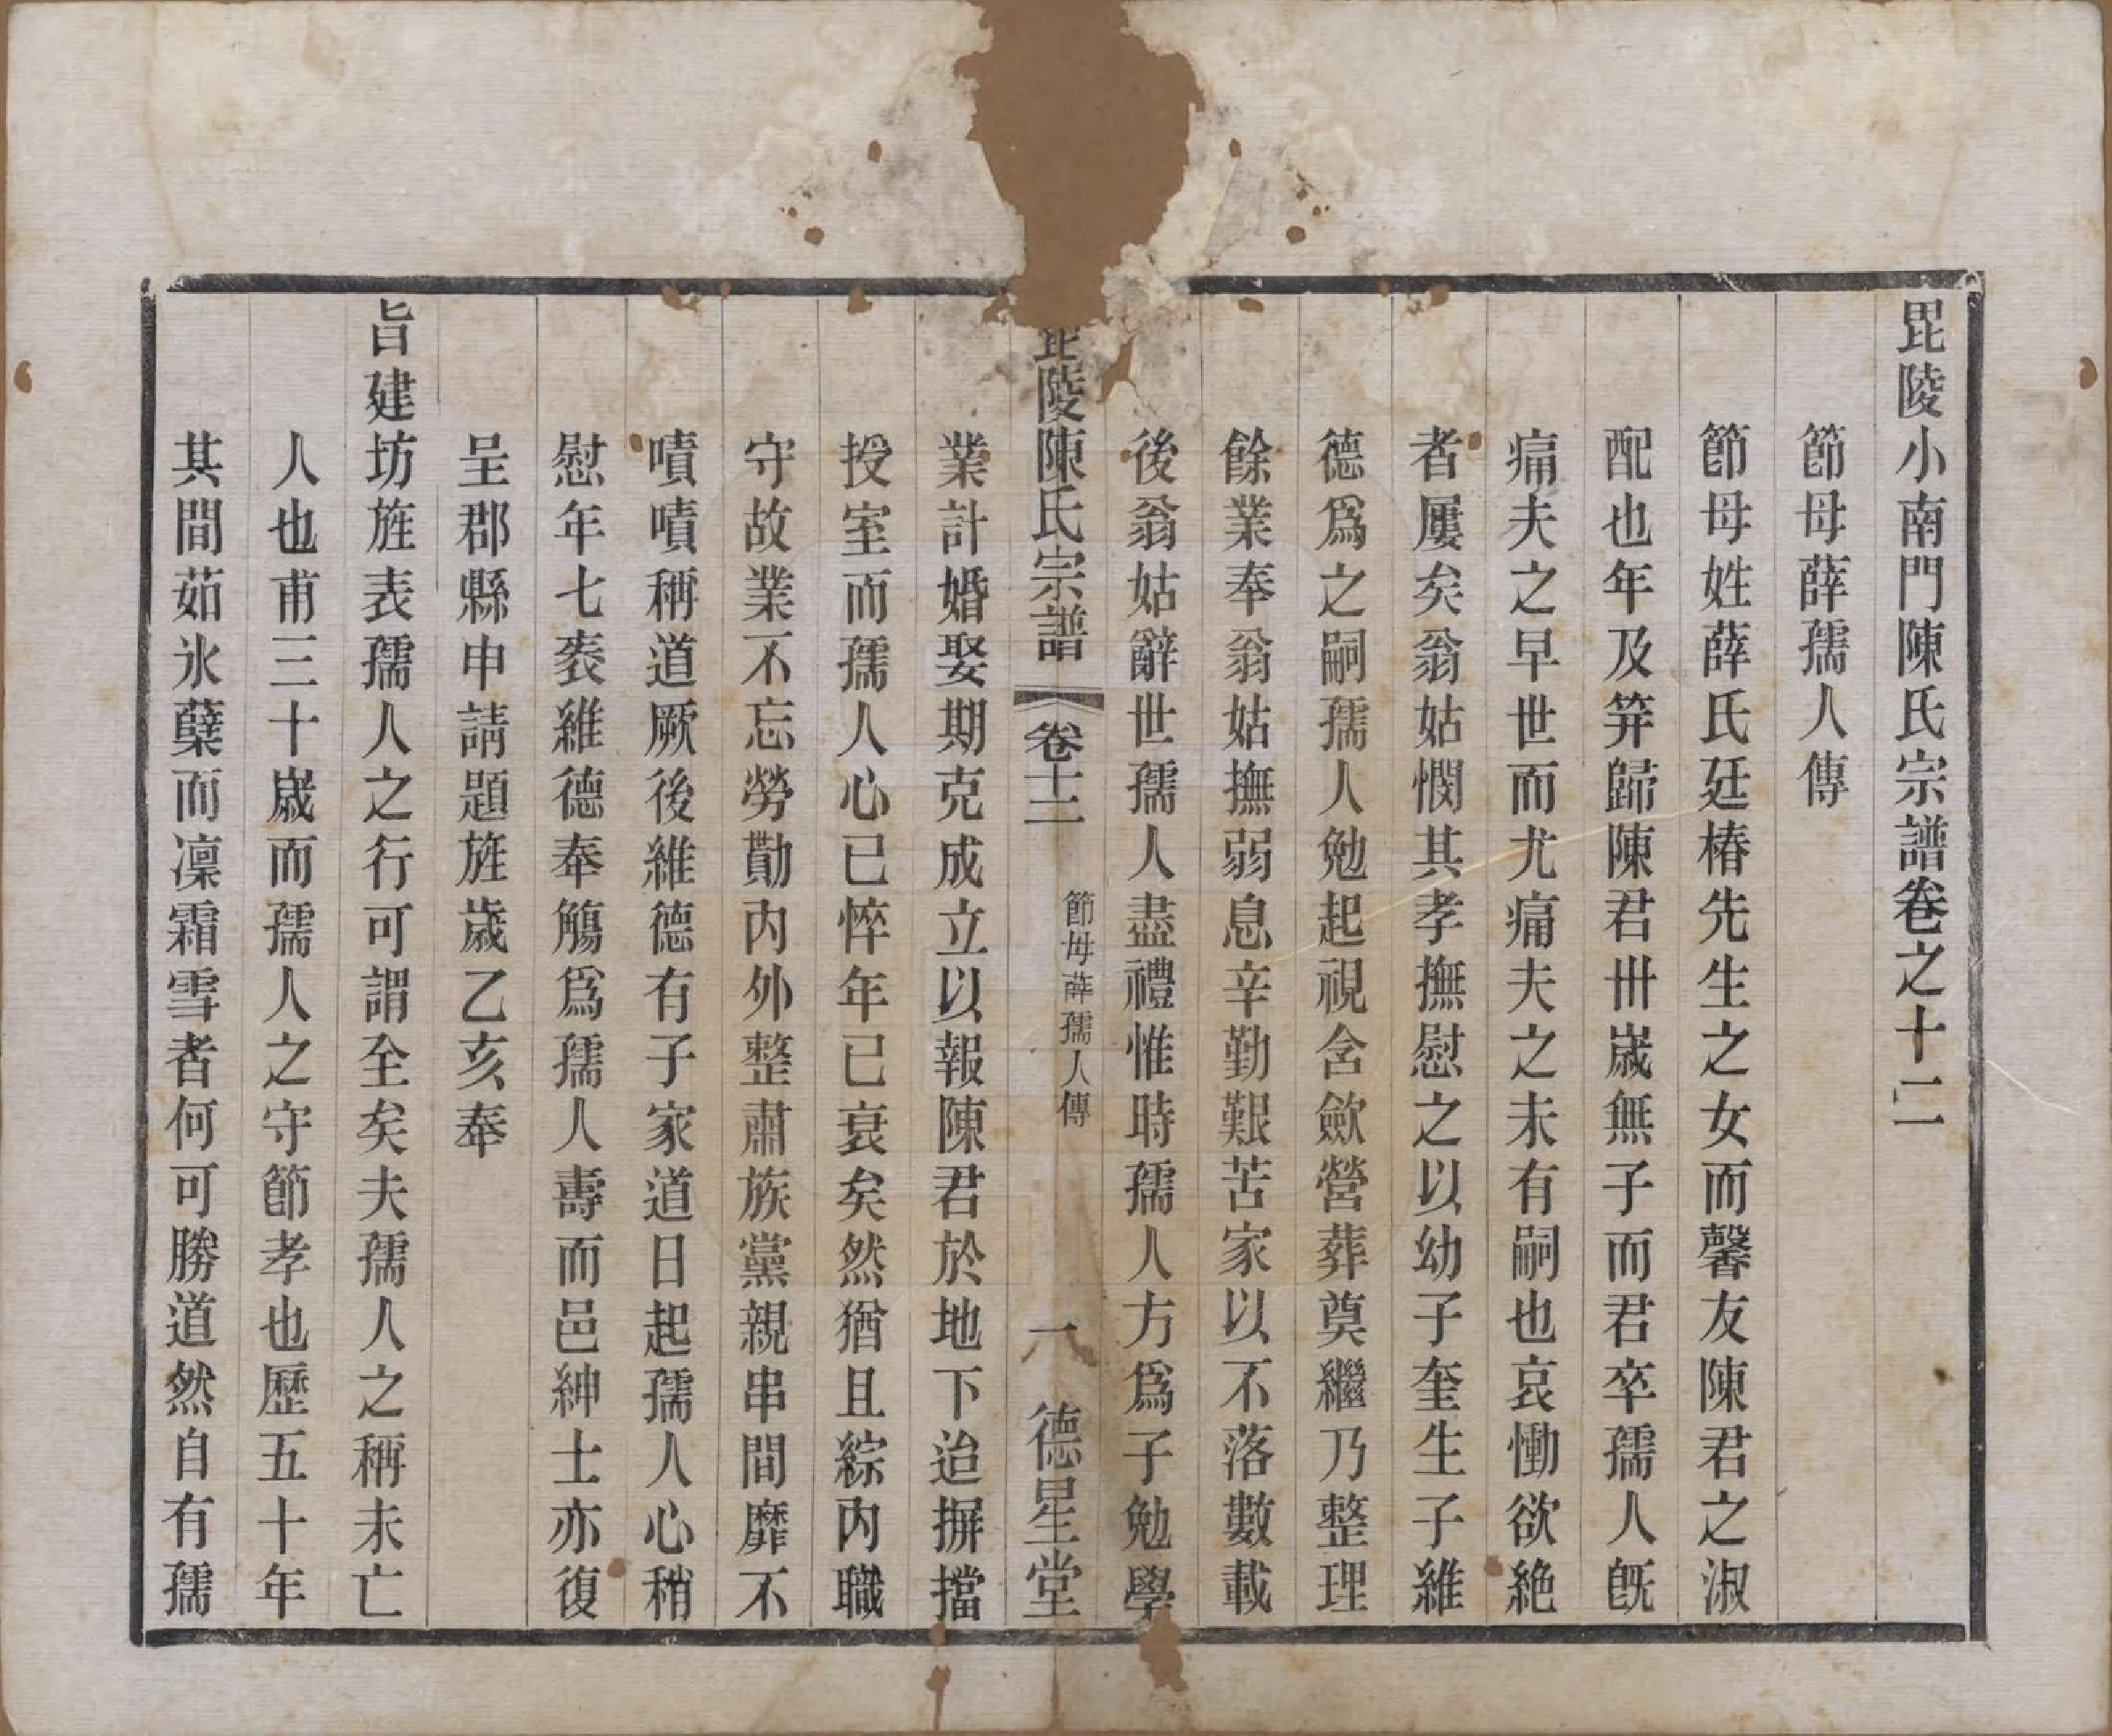 毘陵小南門陳氏宗譜卷之十二
節母薛孺人傳
節母姓薛氏廷椿先生之女而馨友陳君之淑
配也年及筓歸陳君卅歲無子而君卒孺人旣
痛夫之早世而尤痛夫之未有嗣也哀慟欲絶
者屢矣翁姑憫其孝撫慰之以幼子奎生子維
德爲之嗣孺人勉起視含歛營葬奠繼乃整理
餘業奉翁姑撫弱息辛勤艱苦家以不落數載
後翁姑辭世孺人盡禮惟時孺人方爲子勉學
毘陵陳氏宗譜 卷十二 節母薛孺人傳 一 德星堂
業計婚娶期克成立以報陳君於地下迨摒擋
授室而孺人心已悴年已衰矣然猶且綜內職
守故業不忘勞勩內外整肅族黨親串間靡不
嘖嘖稱道厥後維德有子家道日起孺人心稍
慰年七袠維德奉觴爲孺人壽而邑紳士亦復
呈郡縣申請題旌歲乙亥奉
旨建坊旌表孺人之行可謂至矣夫孺人之稱未亡
人也甫三十歲而孺人之守節孝也歷五十年
其間茹氷蘗而凜霜雪者何可勝道然自有孺